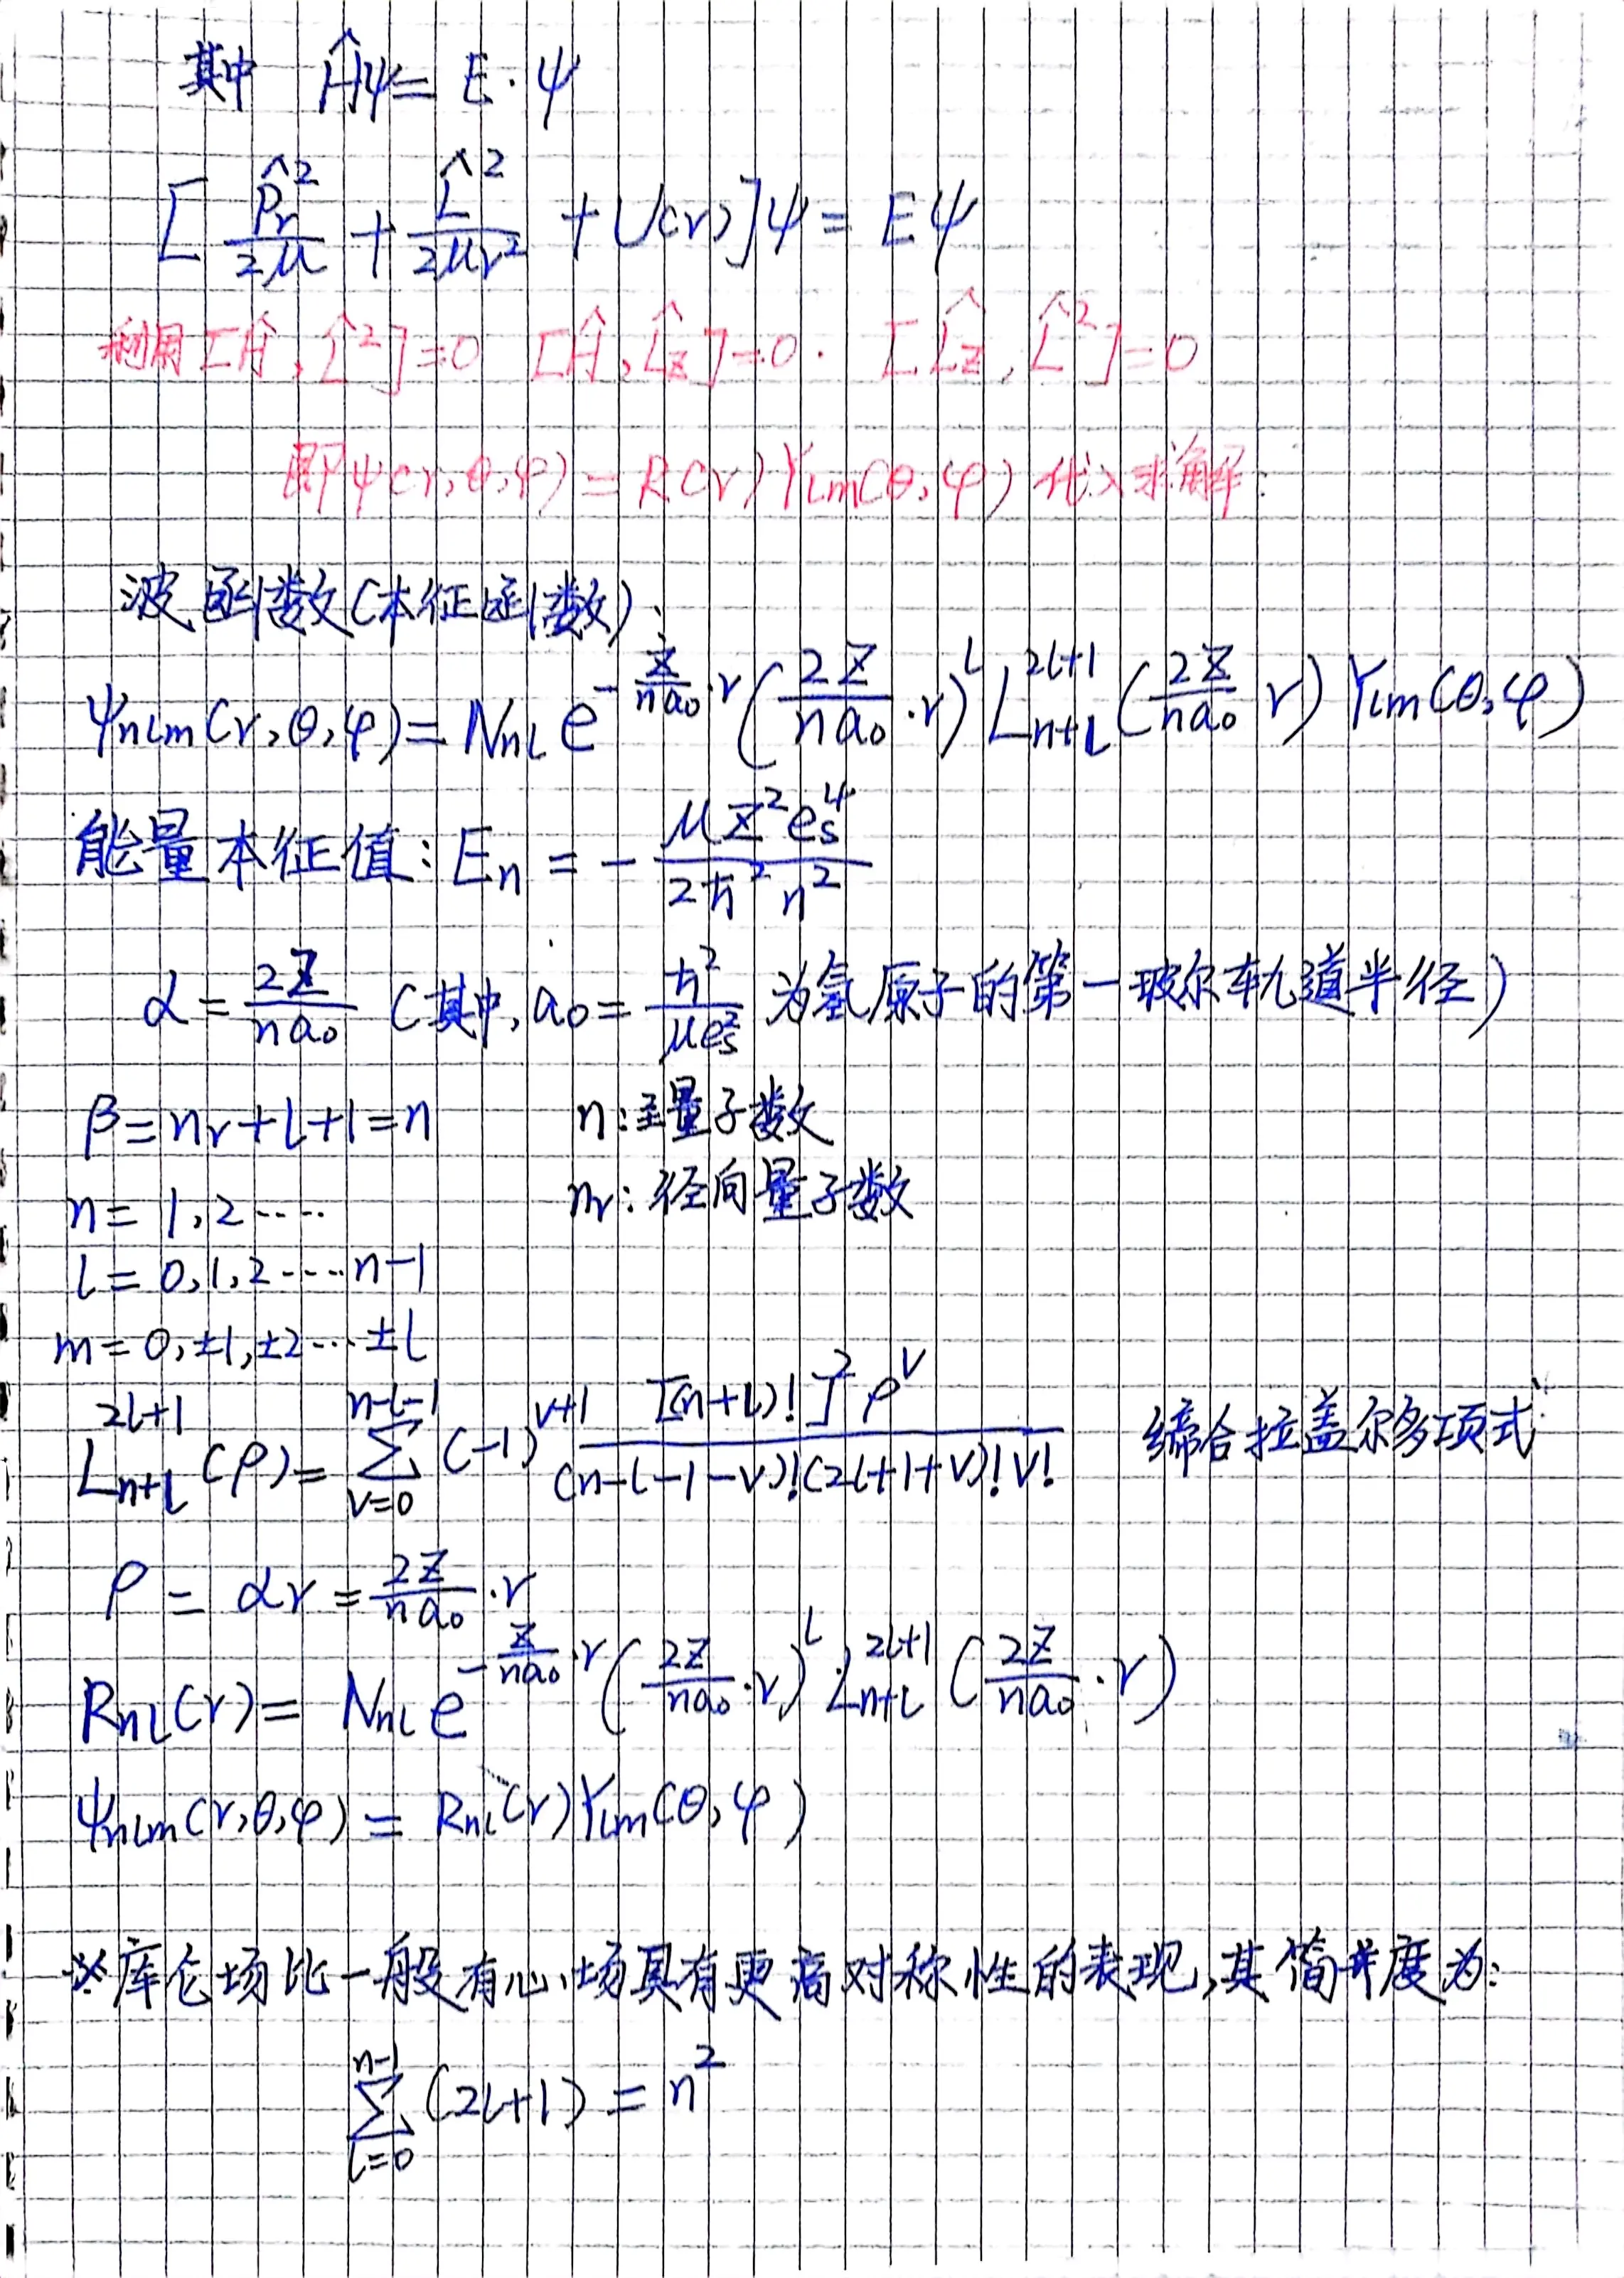 其中 Ĥψ = E·ψ
[ p̂ᵣ²/2μ + L̂²/2μr² + U(r) ]ψ = Eψ
利用 [Ĥ, L̂²]=0 [Ĥ, L̂z]=0. [L̂z, L̂²]=0
即ψ(r,θ,φ) = R(r)Ylm(θ,φ) 代入求解:
波函数(本征函数):
ψnlm(r,θ,φ) = Nnl e^(-Z/na₀·r) (2Z/na₀·r)^l L_{n+l}^{2l+1}(2Z/na₀ r) Ylm(θ,φ)
能量本征值: En = - μZ²es⁴ / 2ħ²n²
α = 2Z/na₀ (其中, a₀ = ħ²/μes² 为氢原子的第一玻尔轨道半径)
β = nr+l+1 = n n:主量子数
n = 1,2····· nr: 径向量子数
l = 0,1,2·····n-1
m = 0,±1,±2···±l
L_{n+l}^{2l+1}(ρ) = Σ_{ν=0}^{n-l-1} (-1)^{ν+1} [(n+l)!]² ρ^ν / (n-l-1-ν)!(2l+1+ν)!ν! 缔合拉盖尔多项式
ρ = αr = 2Z/na₀·r
Rnl(r) = Nnl e^(-Z/na₀·r) (2Z/na₀·r)^l L_{n+l}^{2l+1}(2Z/na₀·r)
ψnlm(r,θ,φ) = Rnl(r)Ylm(θ,φ)
※库仑场比一般有心场具有更高对称性的表现,其简并度为:
Σ_{l=0}^{n-1} (2l+1) = n²